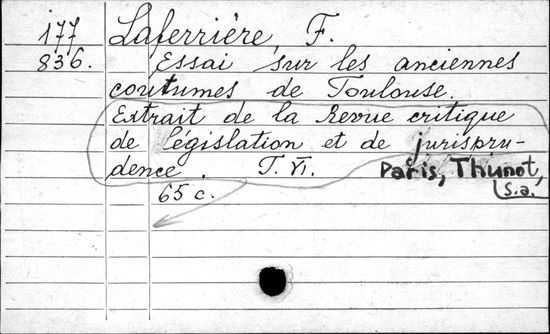 177 Laferrière, F.
836. Essai sur les anciennes
coutumes de Toulouse.
Extrait de la Revue critique
de législation et de jurispru-
dence. T. VI. Paris, Thunot,
s.a.
65 c.